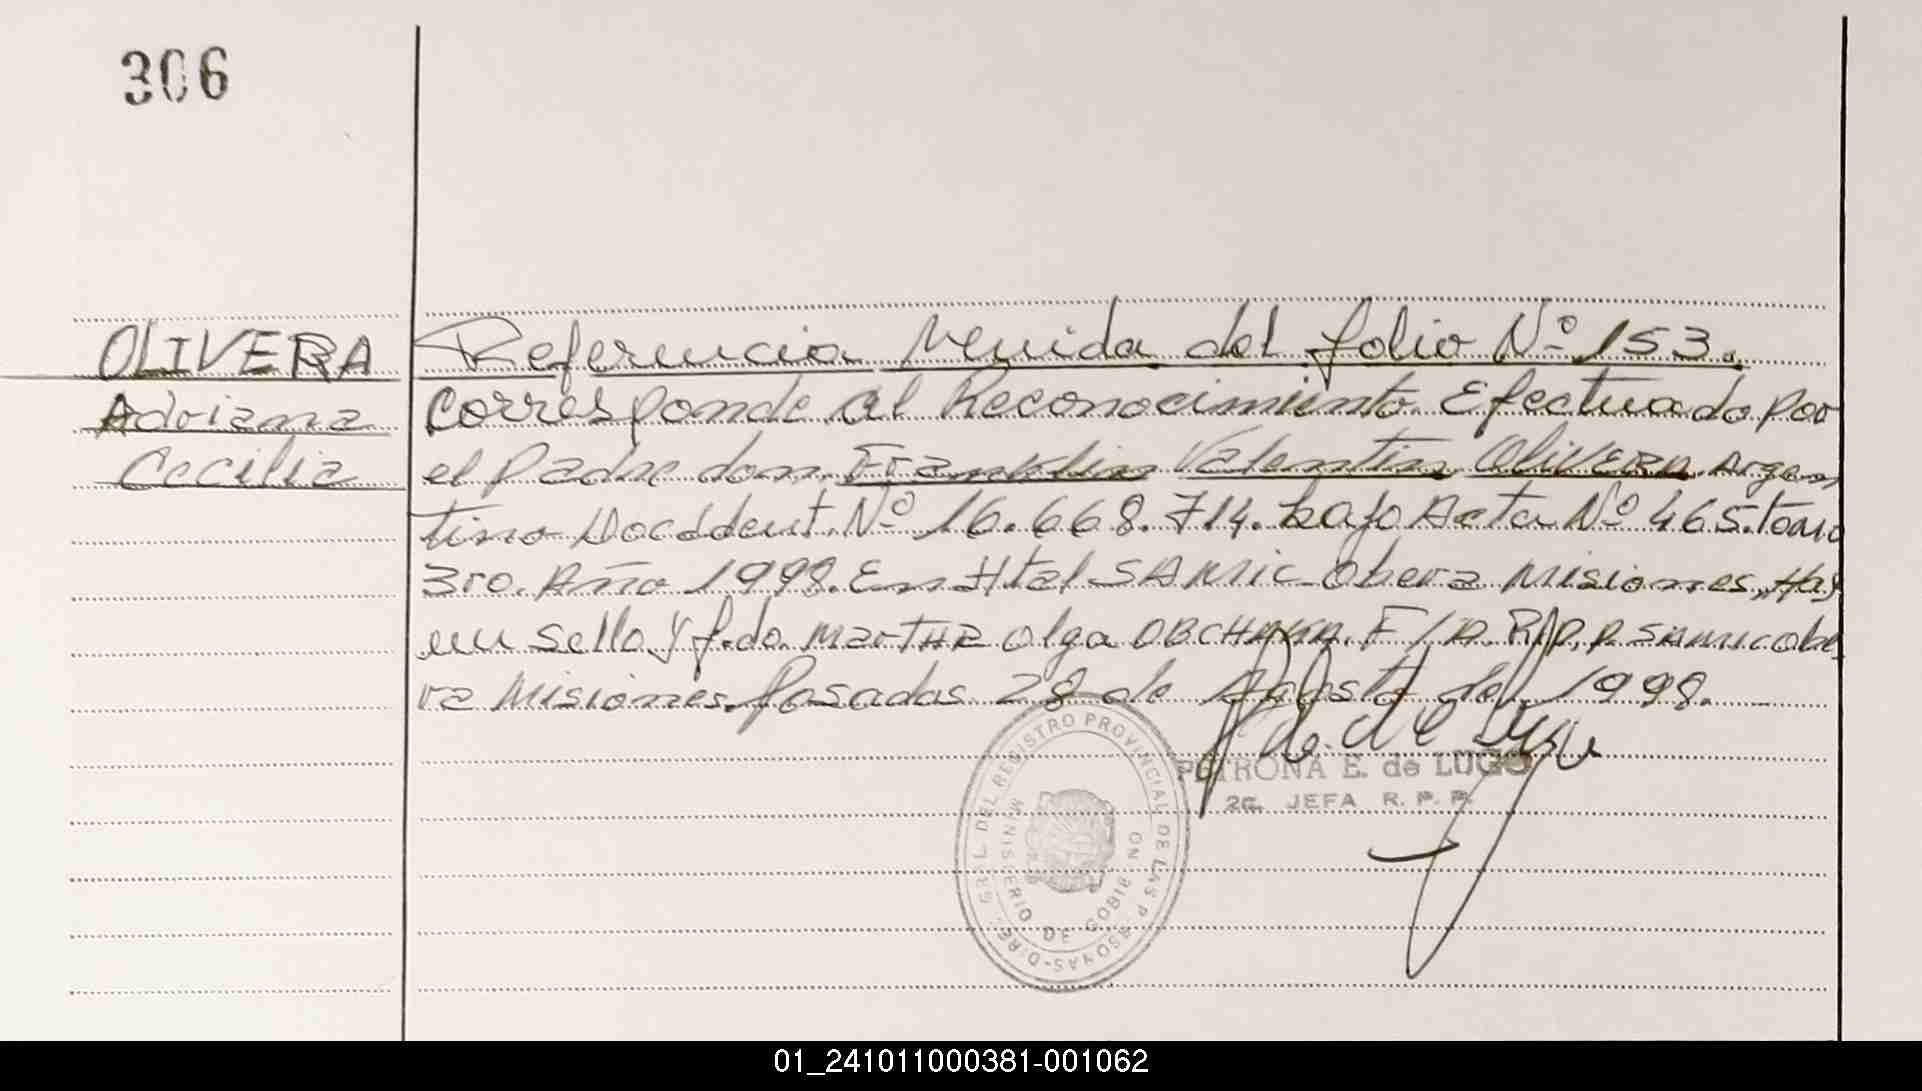 306
OLIVERA
Adriana
Cecilia
Referencia Venida del folio Nº 153.
Corresponde al Reconocimiento Efectuado por
el padre don Franklin Valentin OliVERA Argen
tino Docddent. Nº 16.668.714. bajo Acta Nº 465. tomo
3ro. Año 1998. En Htal SAMIC Obera Misiones, Hay
un sello y f.do. MarTHa Olga F/D. R.P.P. SAMIC Obe
ra Misiones. Posadas 28 de Agosto de 1998.
P. de de Lugo
PETRONA E. de LUGO
2a. JEFA R. P. P.
DIREC. GRAL. DEL REGISTRO PROVINCIAL DE LAS PERSONAS
MINISTERIO DE GOBIERNO
01_241011000381-001062